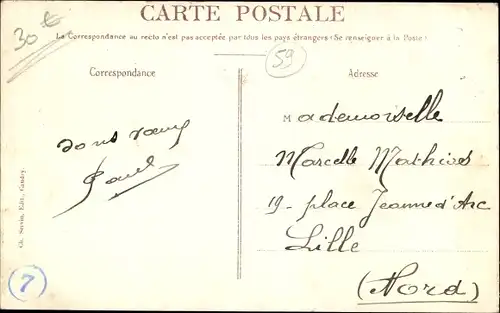 CARTE POSTALE
30€
La Correspondance au recto n'est pas acceptée par tous les pays étrangers (Se renseigner à la Poste)
59
Correspondance
Adresse
Paul
Mademoiselle
Marcelle Mathivés
19 - place Jeanne d'Arc
Lille
(Nord)
Edit., Caudry.
7